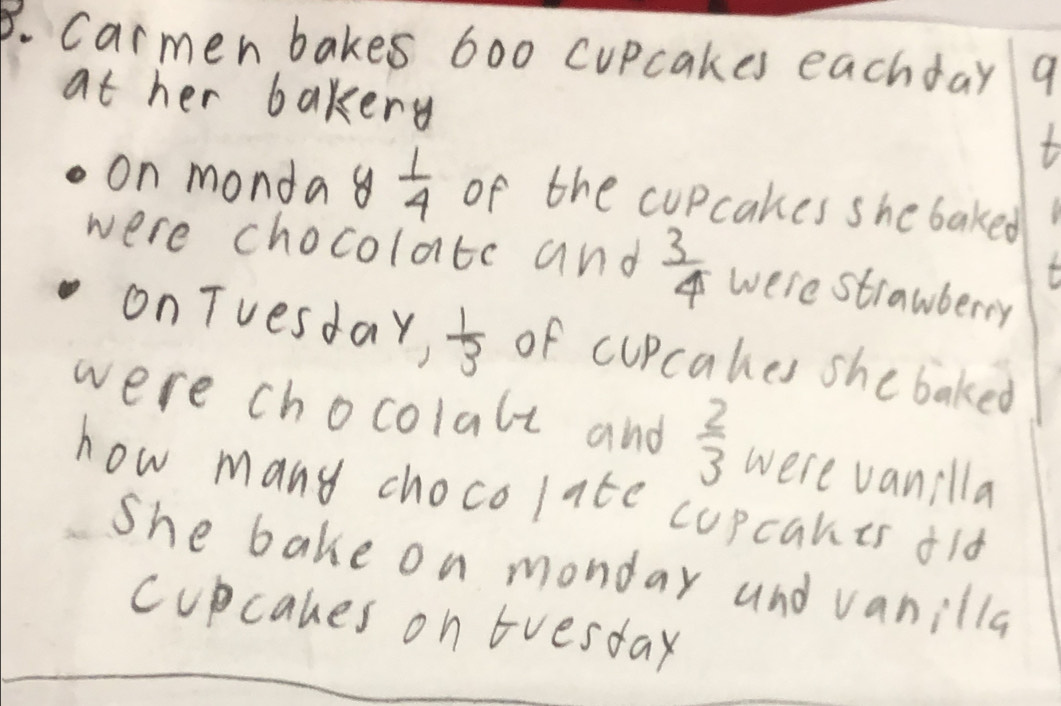 3. Carmen bakes 600 cupcakes each day
at her bakery
• on monday 1/4 of the cupcakes she baked
were chocolate and 3/4 were strawberry
• on Tuesday, 1/3 of cupcakes she baked
were chocolate and 2/3 were vanilla
how many chocolate cupcakes did
she bake on monday and vanilla
cupcakes on tuesday